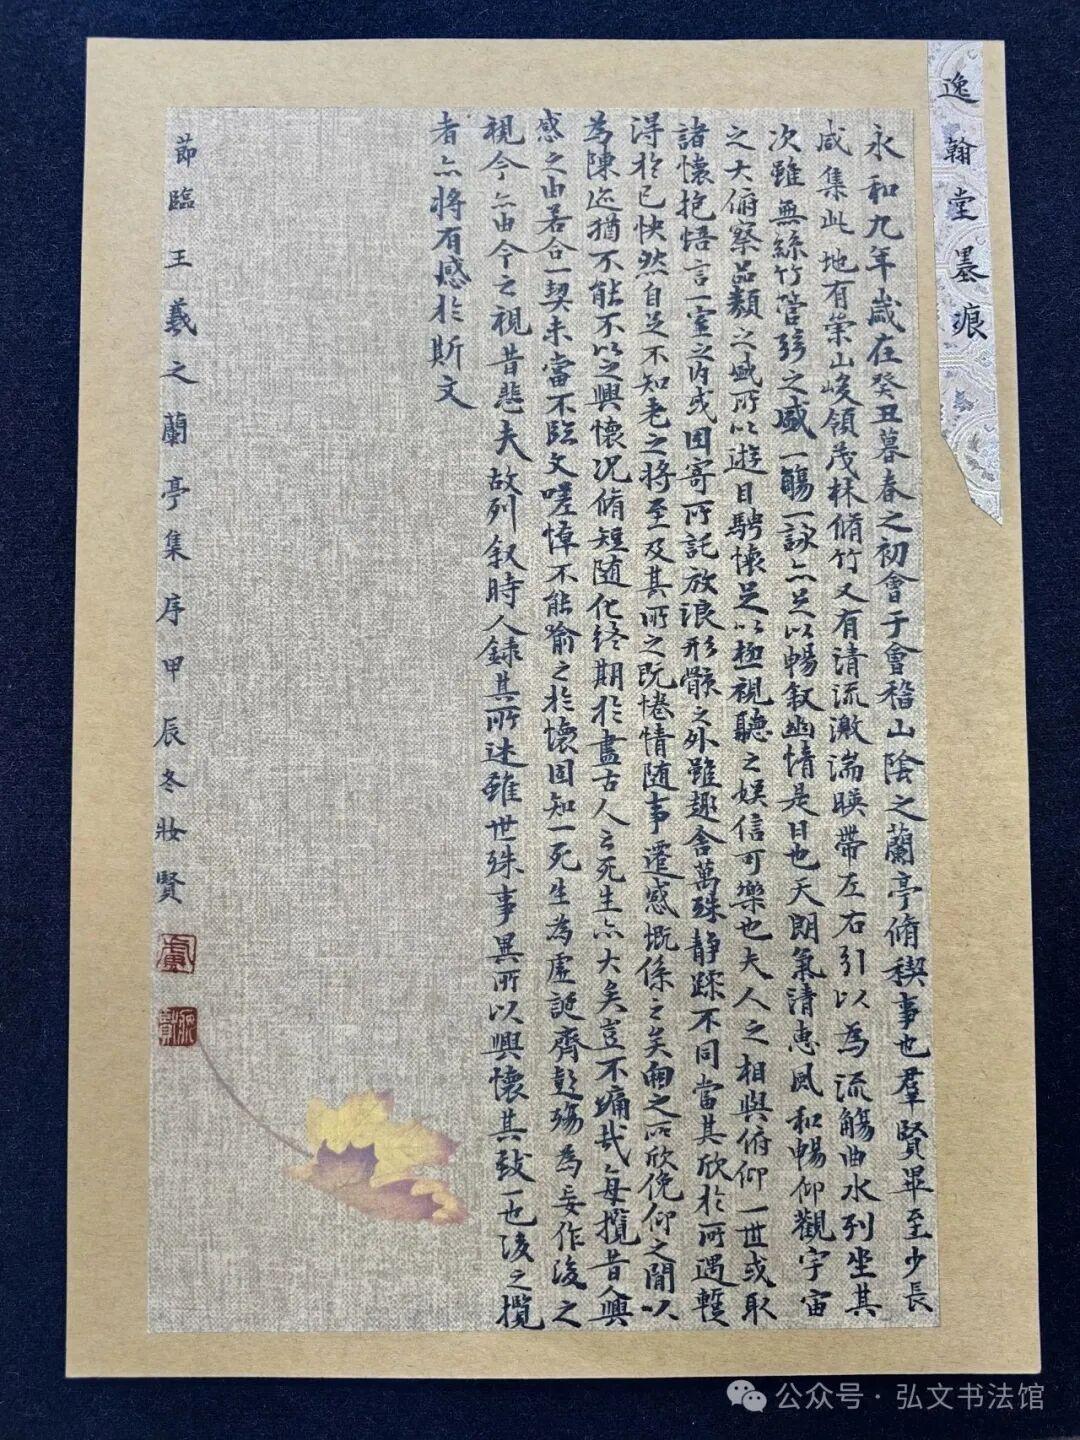 逸翰堂墨痕
永和九年歲在癸丑暮春之初會于會稽山陰之蘭亭脩稧事也羣賢畢至少長
咸集此地有崇山峻領茂林脩竹又有清流激湍暎帶左右引以為流觴曲水列坐其
次雖無絲竹管弦之盛一觴一詠亦足以暢叙幽情是日也天朗氣清惠風和暢仰觀宇宙
之大俯察品類之盛所以遊目騁懷足以極視聽之娛信可樂也夫人之相與俯仰一世或取
諸懷抱悟言一室之內或因寄所託放浪形骸之外雖趣舍萬殊静躁不同當其欣於所遇蹔
得於己快然自足不知老之将至及其所之既惓情随事遷感慨係之矣向之所欣俛仰之閒以
為陳迹猶不能不以之興懷况脩短随化終期於盡古人云死生亦大矣豈不痛哉每攬昔人興
感之由若合一契未嘗不臨文嗟悼不能喻之於懷固知一死生為虛誕齊彭殤為妄作後之
視今亦由今之視昔悲夫故列叙時人錄其所述雖世殊事異所以興懷其致一也後之攬
者亦将有感於斯文
節臨王羲之蘭亭集序甲辰冬妝賢
公众号·弘文书法馆